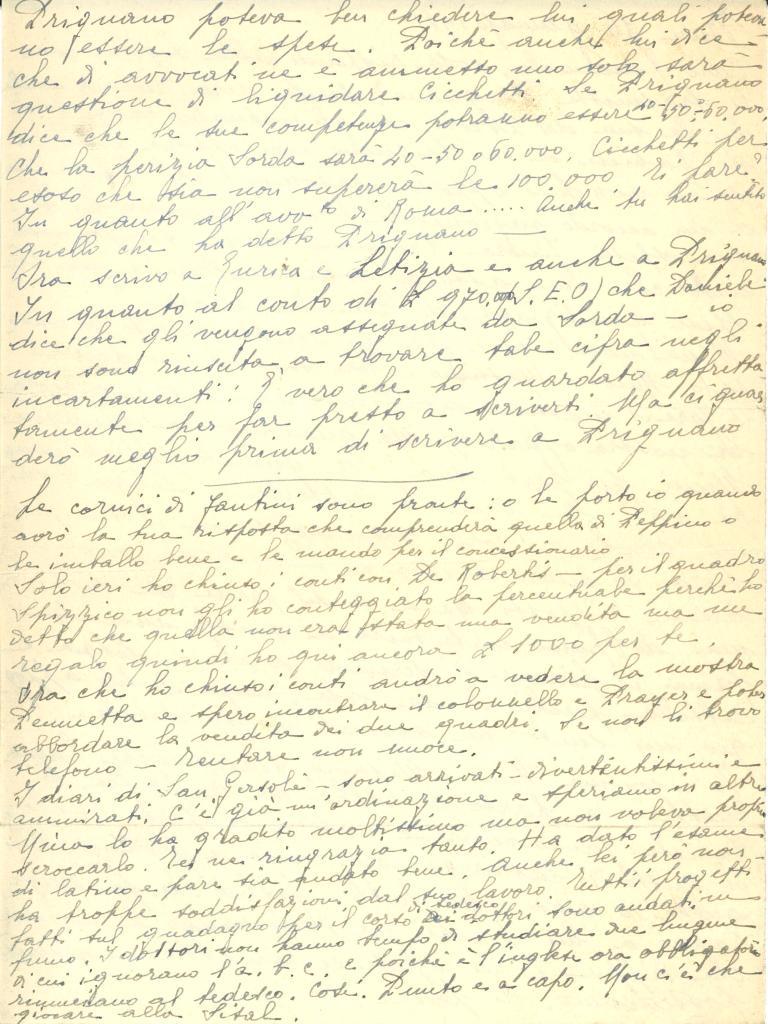 Drignano poteva ben chiedere lui quali poteva-
no essere le spese. Poichè anche lui dice
che di avvocati ne è ammesso uno solo sarà
questione di liquidare Cicchetti. Se Drignano
dice che le sue competenze potranno essere 40-50-60.000,
che la perizia Sorda sarà 40-50 o 60.000, Cicchetti per
esoso che sia non supererà le 100.000 Ti pare?
In quanto all'avv.to di Roma ..... Anche tu hai sentito
quello che ha detto Drignano —
Ora scrivo a Enrica e Letizia e anche a Drignano
In quanto al conto di £ 970.000 (S. E. O) che Daniele
dice che gli vengono assegnate da Sorda — io
non sono riuscita a trovare tale cifra negli
incartamenti! È vero che ho guardato affretta-
tamente per far presto a scriverti. Ma ci guar-
derò meglio prima di scrivere a Drignano
Le cornici di Fantini sono pronte: o le porto io quando
avrò la tua risposta che comprenderà quella di Peppino o
le imballo bene e le mando per il concessionario
Solo ieri ho chiuso i conti con De Robertis — per il quadro
Spizzico non gli ho conteggiato la percentuale perchè ho
detto che quella non era stata una vendita ma un
regalo quindi ho qui ancora £ 1000 per te.
Ora che ho chiuso i conti andrò a vedere la mostra
e spero incontrare il colonnello e Drayer e poter
abbordare la vendita dei due quadri. Se non li trovo
telefono — Tentare non nuoce.
I diari di San Gersolè — sono arrivati — divertentissimi e
ammirati. C'è già un'ordinazione e speriamo in altre
Nina lo ha gradito moltissimo ma non voleva proprio
scroccarlo. Te ne ringrazia tanto. Ha dato l'esame
di latino e pare sia andato bene. Anche lei però non
ha troppe soddisfazioni dal suo lavoro. Tutti i progetti
fatti sul guadagno per il corso di tedesco ai dottori sono andati in
fumo. I dottori non hanno tempo di studiare due lingue
di cui ignorano l'a. b. c. e poichè è l'inglese ora obbligatorio
rinunciano al tedesco. Così. Punto e a capo. Non ci è che
giocare alla Sisal.